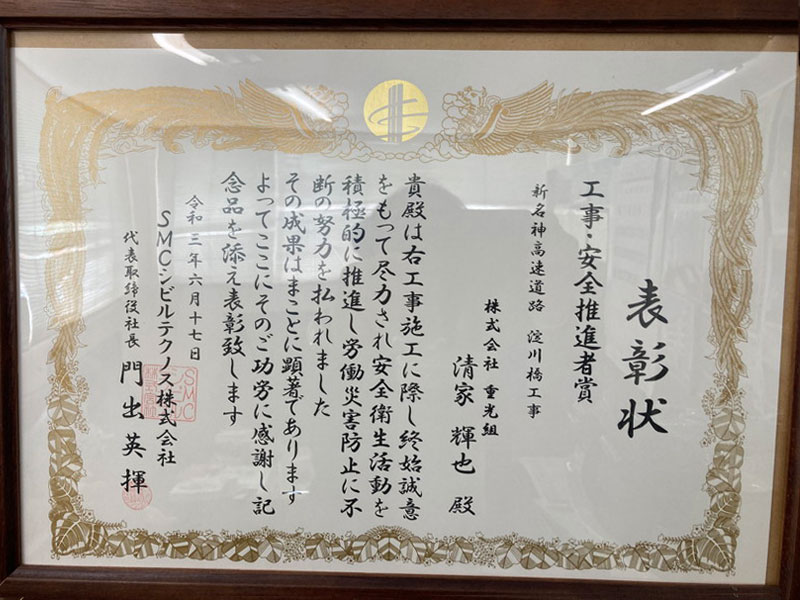 表彰状
工事・安全推進者賞
新名神高速道路 淀川橋工事
株式会社 重光組
清家 輝也 殿
貴殿は右工事施工に際し終始誠意
をもって尽力され安全衛生活動を
積極的に推進し労働災害防止に不
断の努力を払われました
その成果はまことに顕著であります
よってここにそのご功労に感謝し記
念品を添え表彰致します
令和三年六月十七日
SMCシビルテクノス株式会社
代表取締役社長 門出英揮